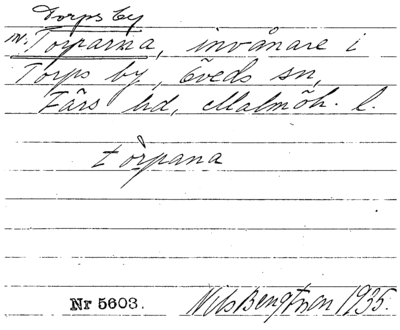 Torps by
N. Torparna, invånare i
Torps by, Öveds sn,
Färs hd, Malmöh. l.
tòrpana
Nr 5603.
Nils Bengtsson 1935.